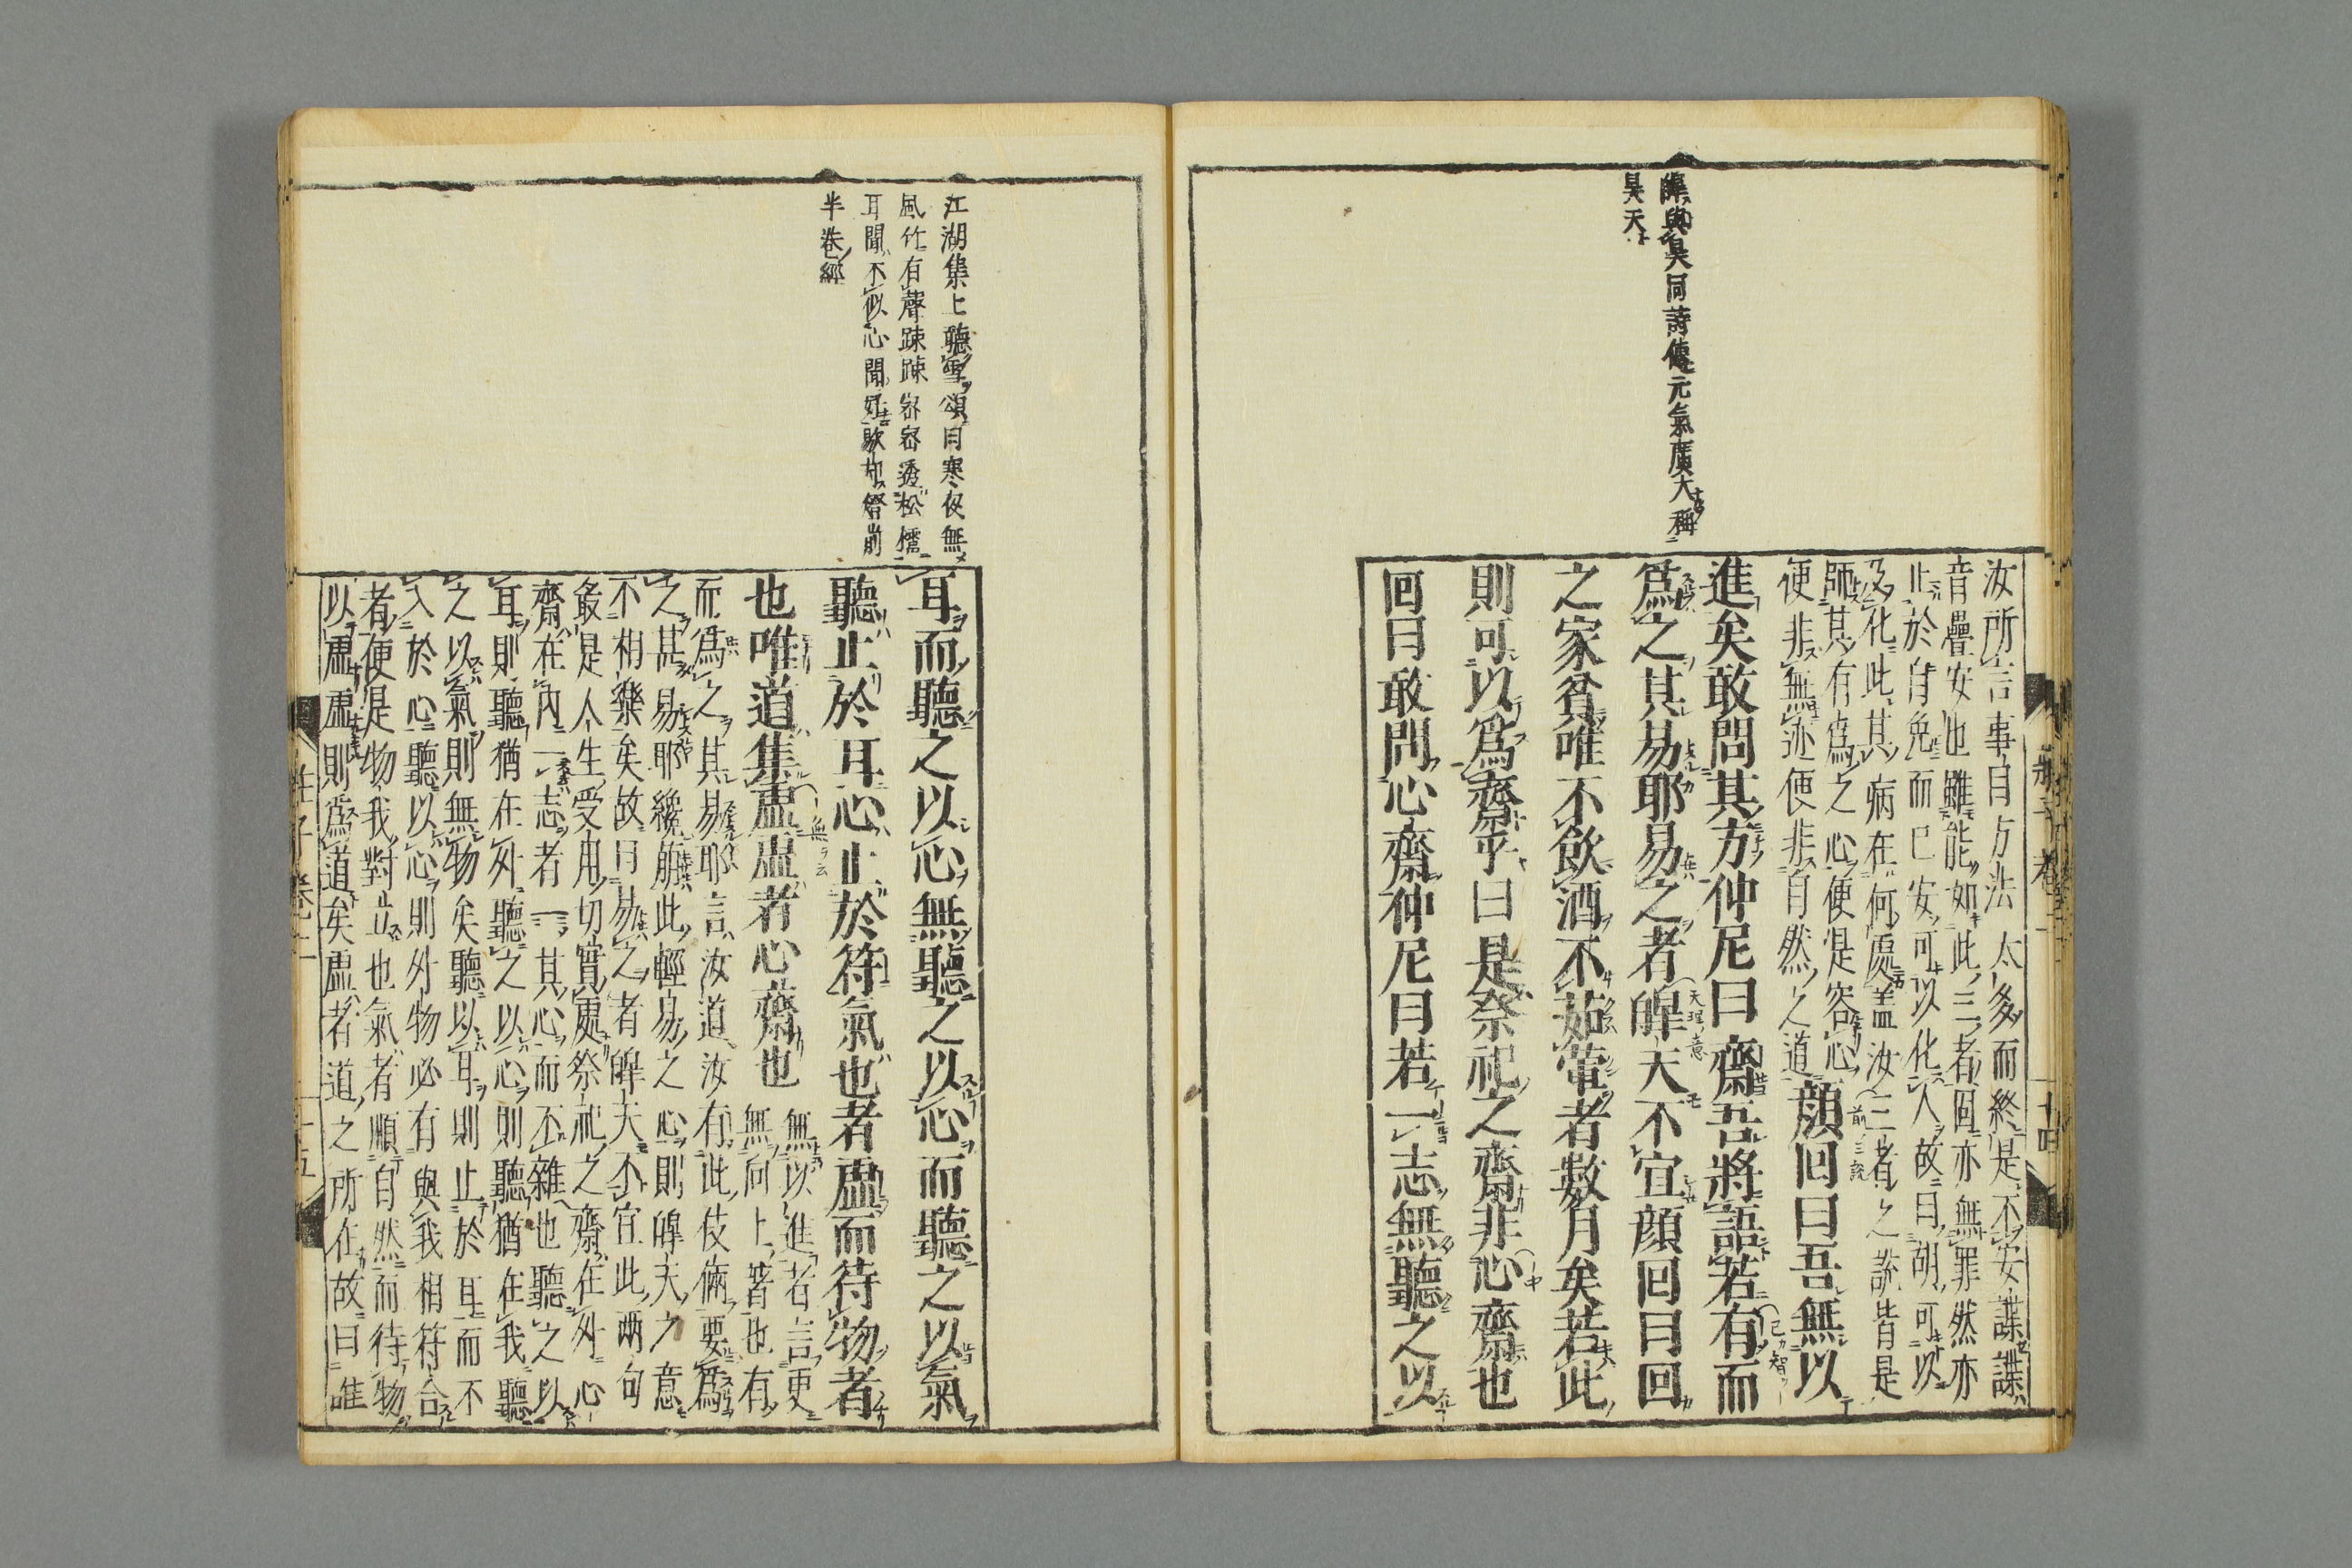 皥與昊同詩傳元氣廣大稱
昊天
汝所言事目方法太多而終是不安諜諜
音疊安也雖能如此三者固亦無罪然亦
止於自免而已安可以化人故曰胡可以
及化此其病在何處盖汝三者之說皆是
師其有爲之心便是容心
便非無迹便非自然之道顔回曰吾無以
進矣敢問其方仲尼曰齋吾將語若有而
爲之其易耶易之者皥天不宜顔回曰回
之家貧唯不飲酒不茹葷者數月矣若此
則可以爲齋乎曰是祭祀之齋非心齋也
回曰敢問心齋仲尼曰若一志無聽之以
江湖集上聽雪頌曰寒夜無
風竹有聲踈踈密密透松櫺
耳聞不似心聞好歇却燈前
半卷經
耳而聽之以心無聽之以心而聽之以氣
聽止於耳心止於符氣也者虛而待物者
也唯道集虛虛者心齋也
無以進者言更
無向上著也有
而爲之其易耶言汝道汝有此伎倆要爲
之甚易耶纔萠此輕易之心則皥天之意
不相樂矣故曰易之者皥天不宜此兩句
最是人生受用切實處祭祀之齋在外心
齋在內一志者一其心而不雜也聽之以
耳則聽猶在外聽之以心則聽猶在我聽
之以氣則無物矣聽以耳則止於耳而不
入於心聽以心則外物必有與我相符合
者便是物我對立也氣者順自然而待物
以虛虛則爲道矣虛者道之所在故曰唯
莊子卷二
十四
十五